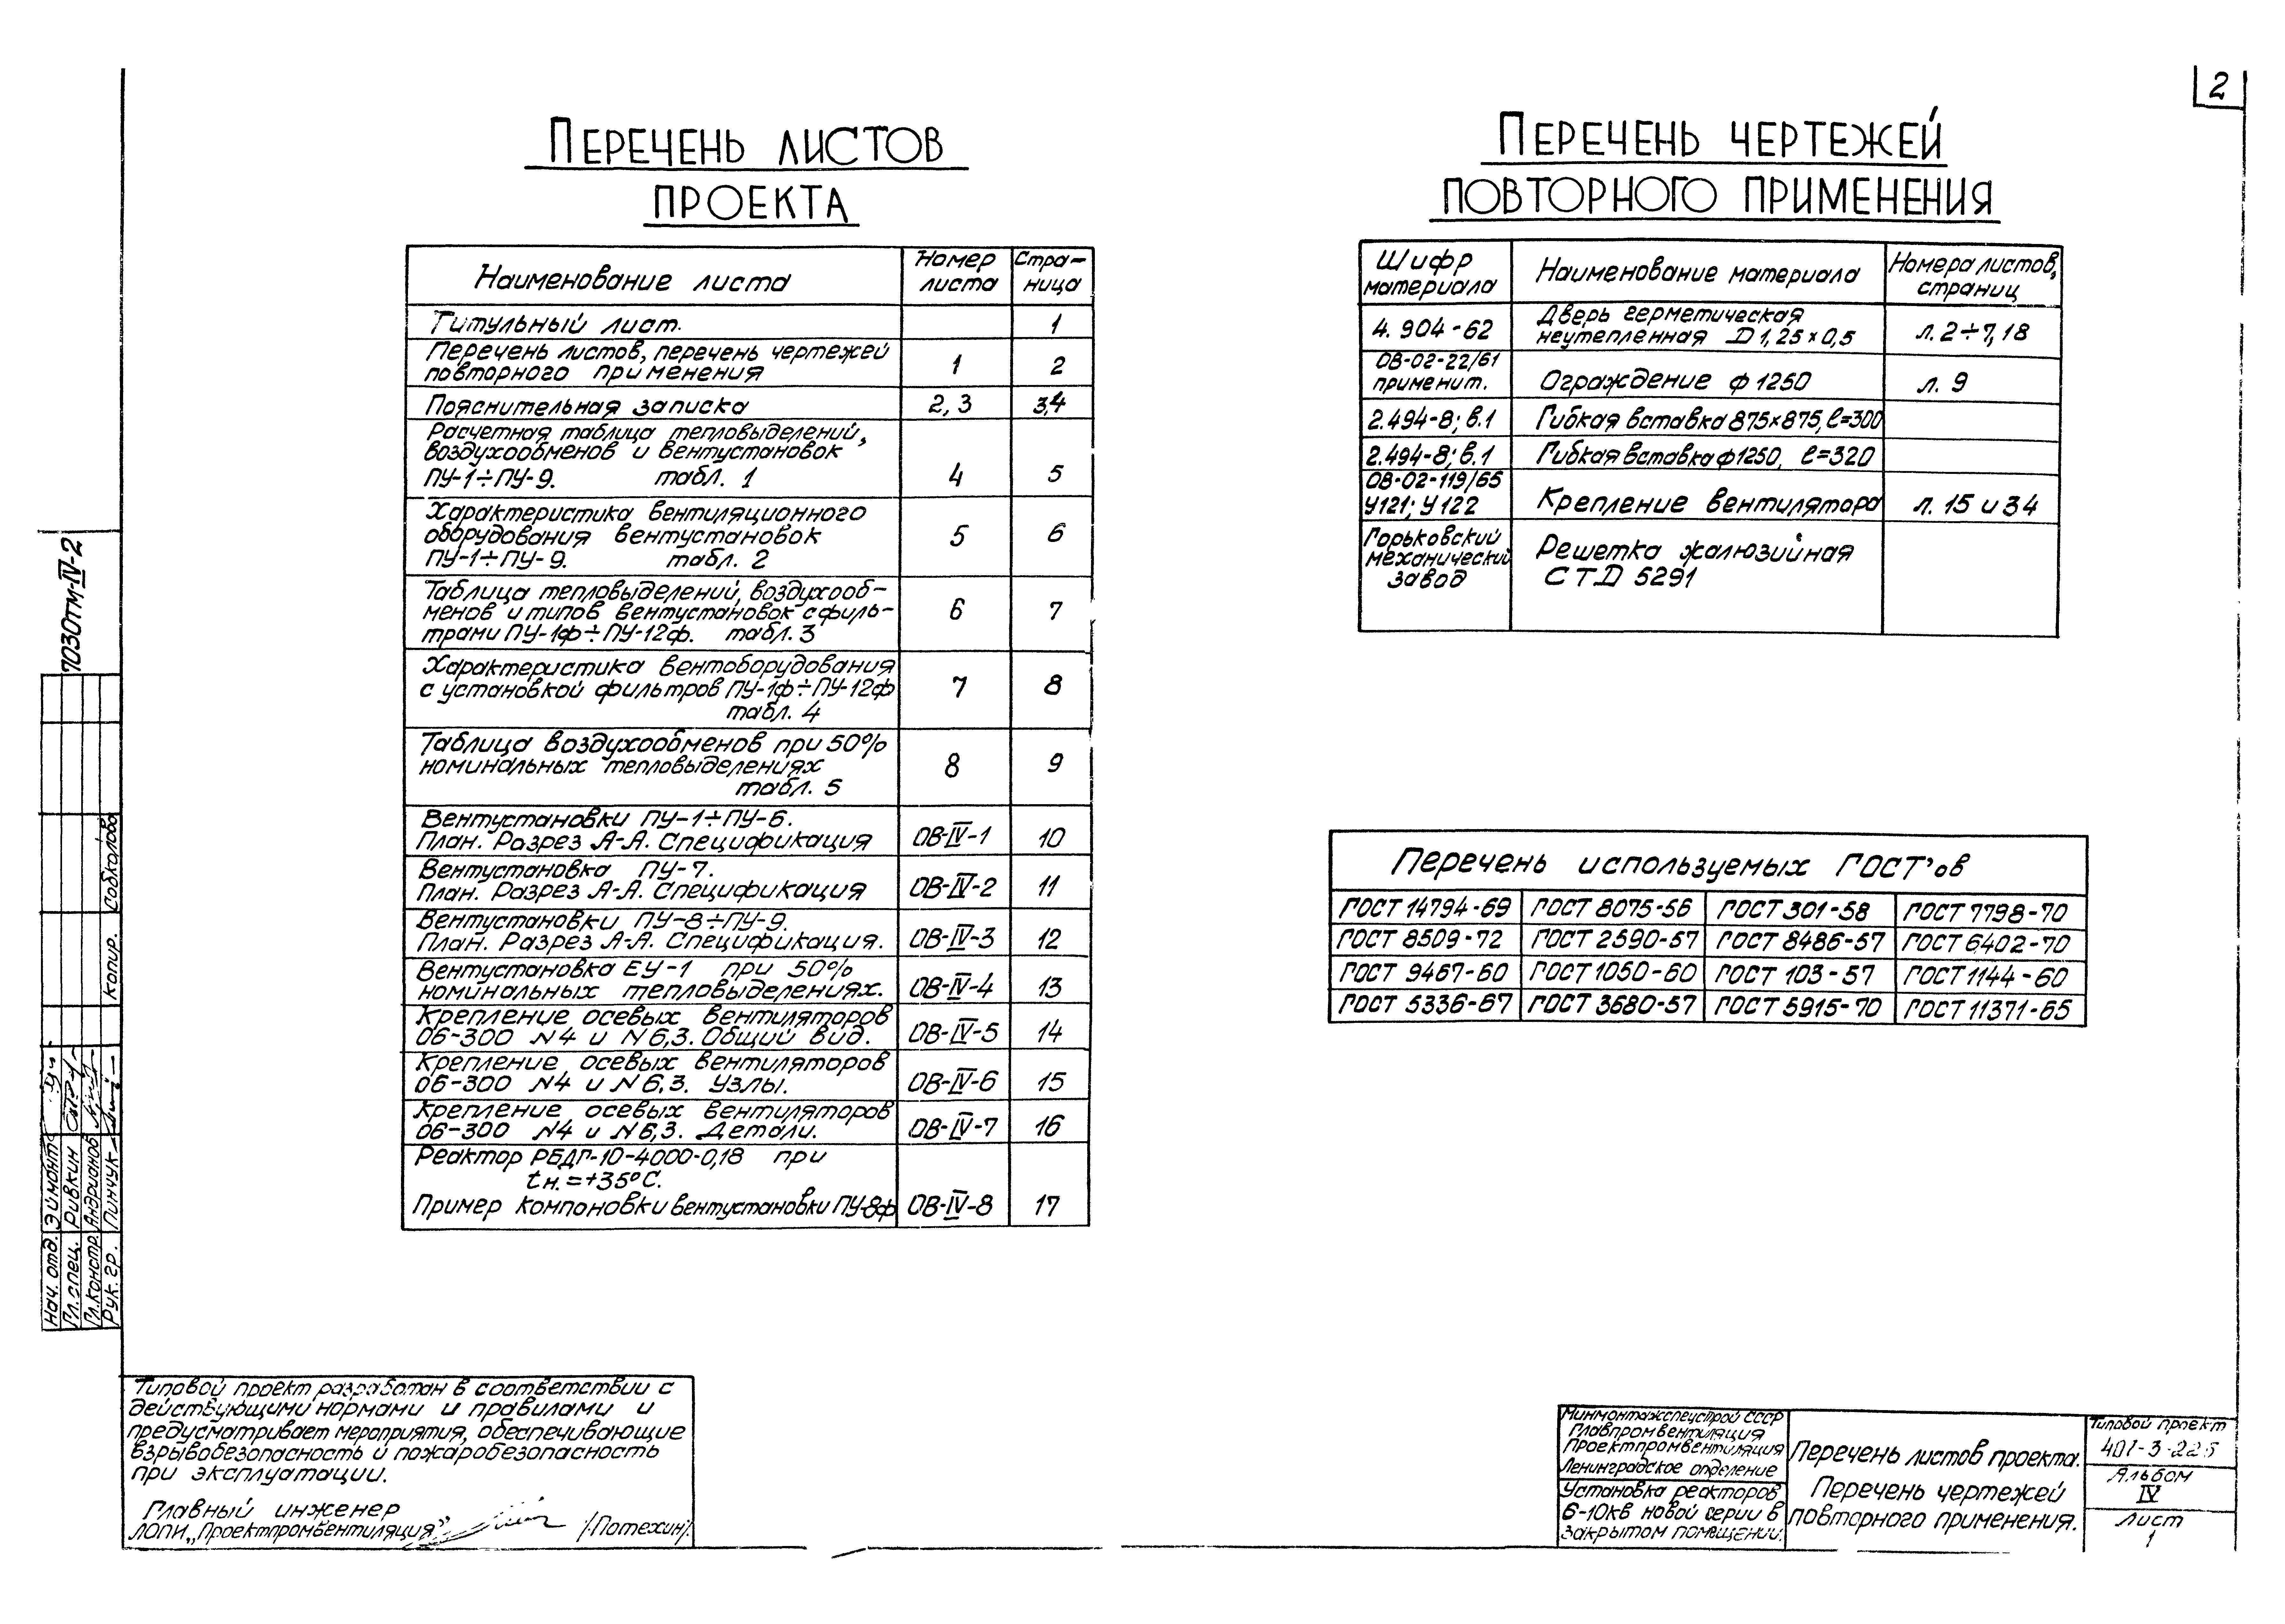 2
Перечень листов
проекта
Наименование листа | Номер листа | Стра-ница
Титульный лист. | | 1
Перечень листов, перечень чертежей
повторного применения | 1 | 2
Пояснительная записка | 2, 3 | 3,4
Расчетная таблица тепловыделений,
воздухообменов и вентустановок
ПУ-1÷ПУ-9. табл. 1 | 4 | 5
Характеристика вентиляционного
оборудования вентустановок
ПУ-1÷ПУ-9. табл. 2 | 5 | 6
Таблица тепловыделений, воздухооб-
менов и типов вентустановок с филь-
трами ПУ-1ф÷ПУ-12ф. табл. 3 | 6 | 7
Характеристика вентоборудования
с установкой фильтров ПУ-1ф÷ПУ-12ф
табл. 4 | 7 | 8
Таблица воздухообменов при 50%
номинальных тепловыделениях
табл. 5 | 8 | 9
Вентустановки ПУ-1÷ПУ-6.
План. Разрез А-А. Спецификация | ОВ-IV-1 | 10
Вентустановка ПУ-7.
План. Разрез А-А. Спецификация | ОВ-IV-2 | 11
Вентустановки ПУ-8÷ПУ-9.
План. Разрез А-А. Спецификация. | ОВ-IV-3 | 12
Вентустановка ЕУ-1 при 50%
номинальных тепловыделениях. | ОВ-IV-4 | 13
Крепление осевых вентиляторов
06-300 N4 и N6,3. Общий вид. | ОВ-IV-5 | 14
Крепление осевых вентиляторов
06-300 N4 и N6,3. Узлы. | ОВ-IV-6 | 15
Крепление осевых вентиляторов
06-300 N4 и N6,3. Детали. | ОВ-IV-7 | 16
Реактор РБДГ-10-4000-0,18 при
tн.=+35°С.
Пример компоновки вентустановки ПУ-8ф | ОВ-IV-8 | 17
Перечень чертежей
повторного применения
Шифр материала | Наименование материала | Номера листов, страниц
4.904-62 | Дверь герметическая
неутепленная D 1,25×0,5 | л. 2÷7, 18
ОВ-02-22/61
применит. | Ограждение ф 1250 | л. 9
2.494-8; в.1 | Гибкая вставка 875×875, ℓ=300
2.494-8; в.1 | Гибкая вставка ф1250, ℓ=320
ОВ-02-119/65
У121; У122 | Крепление вентилятора | л. 15 и 34
Горьковский
механический
завод | Решетка жалюзийная
СТD 5291
Перечень используемых ГОСТ'ов
ГОСТ 14794-69 | ГОСТ 8075-56 | ГОСТ 301-58 | ГОСТ 7798-70
ГОСТ 8509-72 | ГОСТ 2590-57 | ГОСТ 8486-57 | ГОСТ 6402-70
ГОСТ 9467-60 | ГОСТ 1050-60 | ГОСТ 103-57 | ГОСТ 1144-60
ГОСТ 5336-67 | ГОСТ 3680-57 | ГОСТ 5915-70 | ГОСТ 11371-65
7030тм-IV-2
копир. Собколова
Нач. отд. Эймонт
Гл. спец. Ривкин
Гл. констр. Андрианов
Рук. гр. Пинчук
Типовой проект разработан в соответствии с
действующими нормами и правилами и
предусматривает мероприятия, обеспечивающие
взрывобезопасность и пожаробезопасность
при эксплуатации.
Главный инженер
ЛОПИ „Проектпромвентиляция" /Потехин/.
Минмонтажспецстрой СССР
Главпромвентиляция
Проектпромвентиляция
Ленинградское отделение
Установка реакторов
6-10кв новой серии в
закрытом помещении.
Перечень листов проекта.
Перечень чертежей
повторного применения.
Типовой проект
407-3-225
Альбом
IV
Лист
1